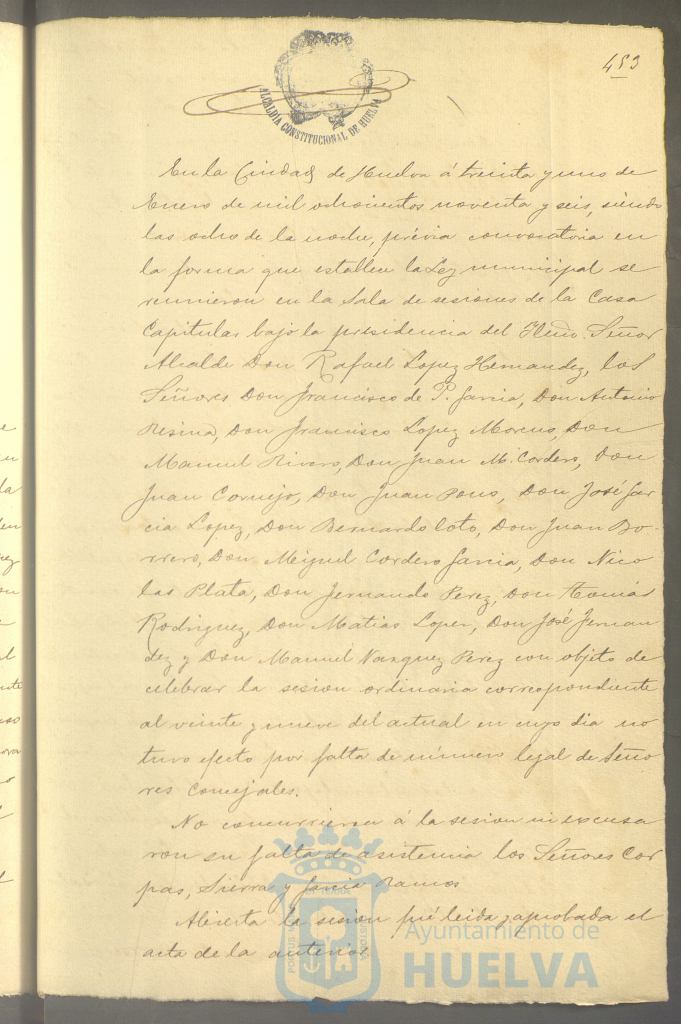 453
ALCALDIA CONSTITUCIONAL DE HUELVA
En la Ciudad de Huelva á treinta y uno de
Enero de mil ochocientos noventa y seis, siendo
las ocho de la noche, prévia convocatoria en
la forma que establece la Ley municipal se
reunieron en la Sala de sesiones de la Casa
Capitular bajo la presidencia del Iltmo. Señor
Alcalde Don Rafael Lopez Hernandez, los
Señores Don Francisco de P. Garcia, Don Antonio
Resina, Don Francisco Lopez Moreno, Don
Manuel Rivero, Don Juan M. Cordero, Don
Juan Cornejo, Don Juan Pons, Don José Gar
cia Lopez, Don Bernardo Coto, Don Juan Bo-
rrero, Don Miguel Cordero Garcia, Don Nico
las Plata, Don Fernando Perez, Don Tomás
Rodriguez, Don Matias Lopez, Don José Fernan
dez y Don Manuel Vazquez Perez con objeto de
celebrar la sesion ordinaria correspondiente
al veinte y nueve del actual en cuyo dia no
tuvo efecto por falta de número legal de Seño
res Concejales.
No concurrieron á la sesion ni excusa
ron su falta de asistencia los Señores Cor
pas, Sierra y Garcia Ramos
Abierta la sesion fué leida y aprobada el
acta de la anterior
Ayuntamiento de
HUELVA